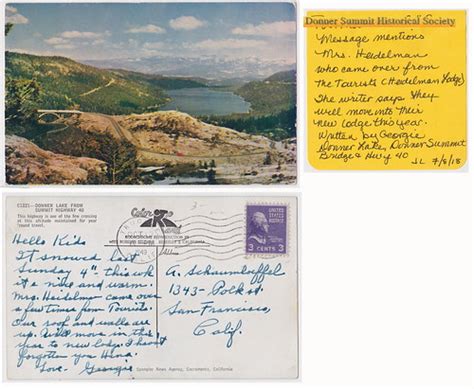 Donner Summit Historical Society
Message mentions
Mrs. Heidelman
who came over from
the Tourists (Heidelman Lodge)
The writer says they
will move into their
new lodge this year.
Written by Georgie
Donner Lake, Donner Summit
Bridge & Hwy 40
JL 7/8/18
DONNER LAKE FROM
SUMMIT HIGHWAY 40
This highway is one of the few crossing
at this altitude maintained for year
'round travel.
Hello Kids
It snowed last
Sunday 4th this wk
it's nice and warm.
Mrs. Heidelman came over
a few times from Tourists.
Our roof and walls are
up. Will move in this
year to new lodg. I haven't
forgotten you
Love. Georgie
UNITED STATES
POSTAGE
3 CENTS 3
A. Schaumloffel
1343 - Polk st.
San Francisco,
Calif.
News Agency, Sacramento, California